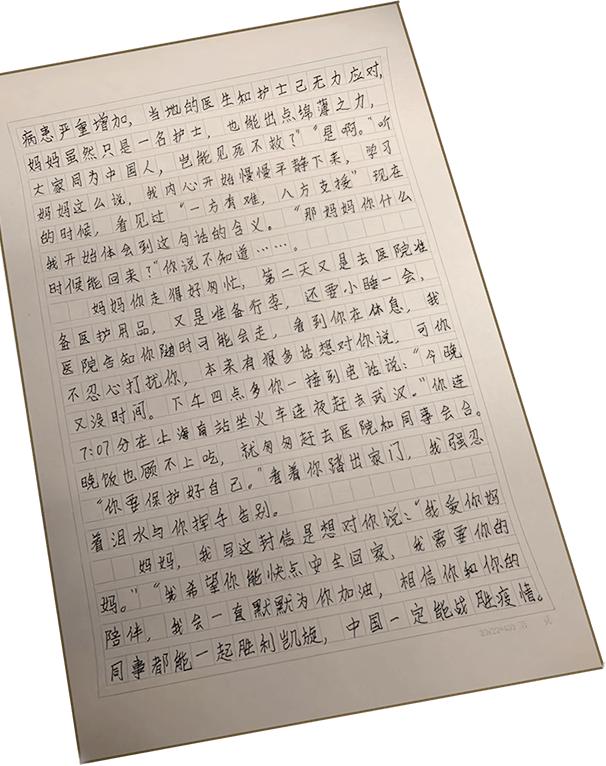 病患严重增加，当地的医生和护士已无力应对，
妈妈虽然只是一名护士，也能出点绵薄之力，
大家同为中国人，岂能见死不救？”“是啊。”听
妈妈这么说，我内心开始慢慢平静下来，学习
的时候，看见过“一方有难，八方支援”现在
我开始体会到这句话的含义。“那妈妈你什么
时候能回来？”你说不知道……。
妈妈你走得好匆忙，第二天又是去医院准
备医护用品，又是准备行李，还要小睡一会，
医院告知你随时可能会走，看到你在休息，我
不忍心打扰你，本来有很多话想对你说，可你
又没时间。下午四点多你一接到电话说：“今晚
7:07分在上海南站坐火车连夜赶去武汉。”你连
晚饭也顾不上吃，就匆匆赶去医院和同事会合。
“你要保护好自己。”看着你踏出家门，我强忍
着泪水与你挥手告别。
妈妈，我写这封信是想对你说：“我爱你妈
妈。”“我希望你能快点安全回家，我需要你的
陪伴，我会一直默默为你加油，相信你和你的
同事都能一起胜利凯旋，中国一定能战胜疫情。